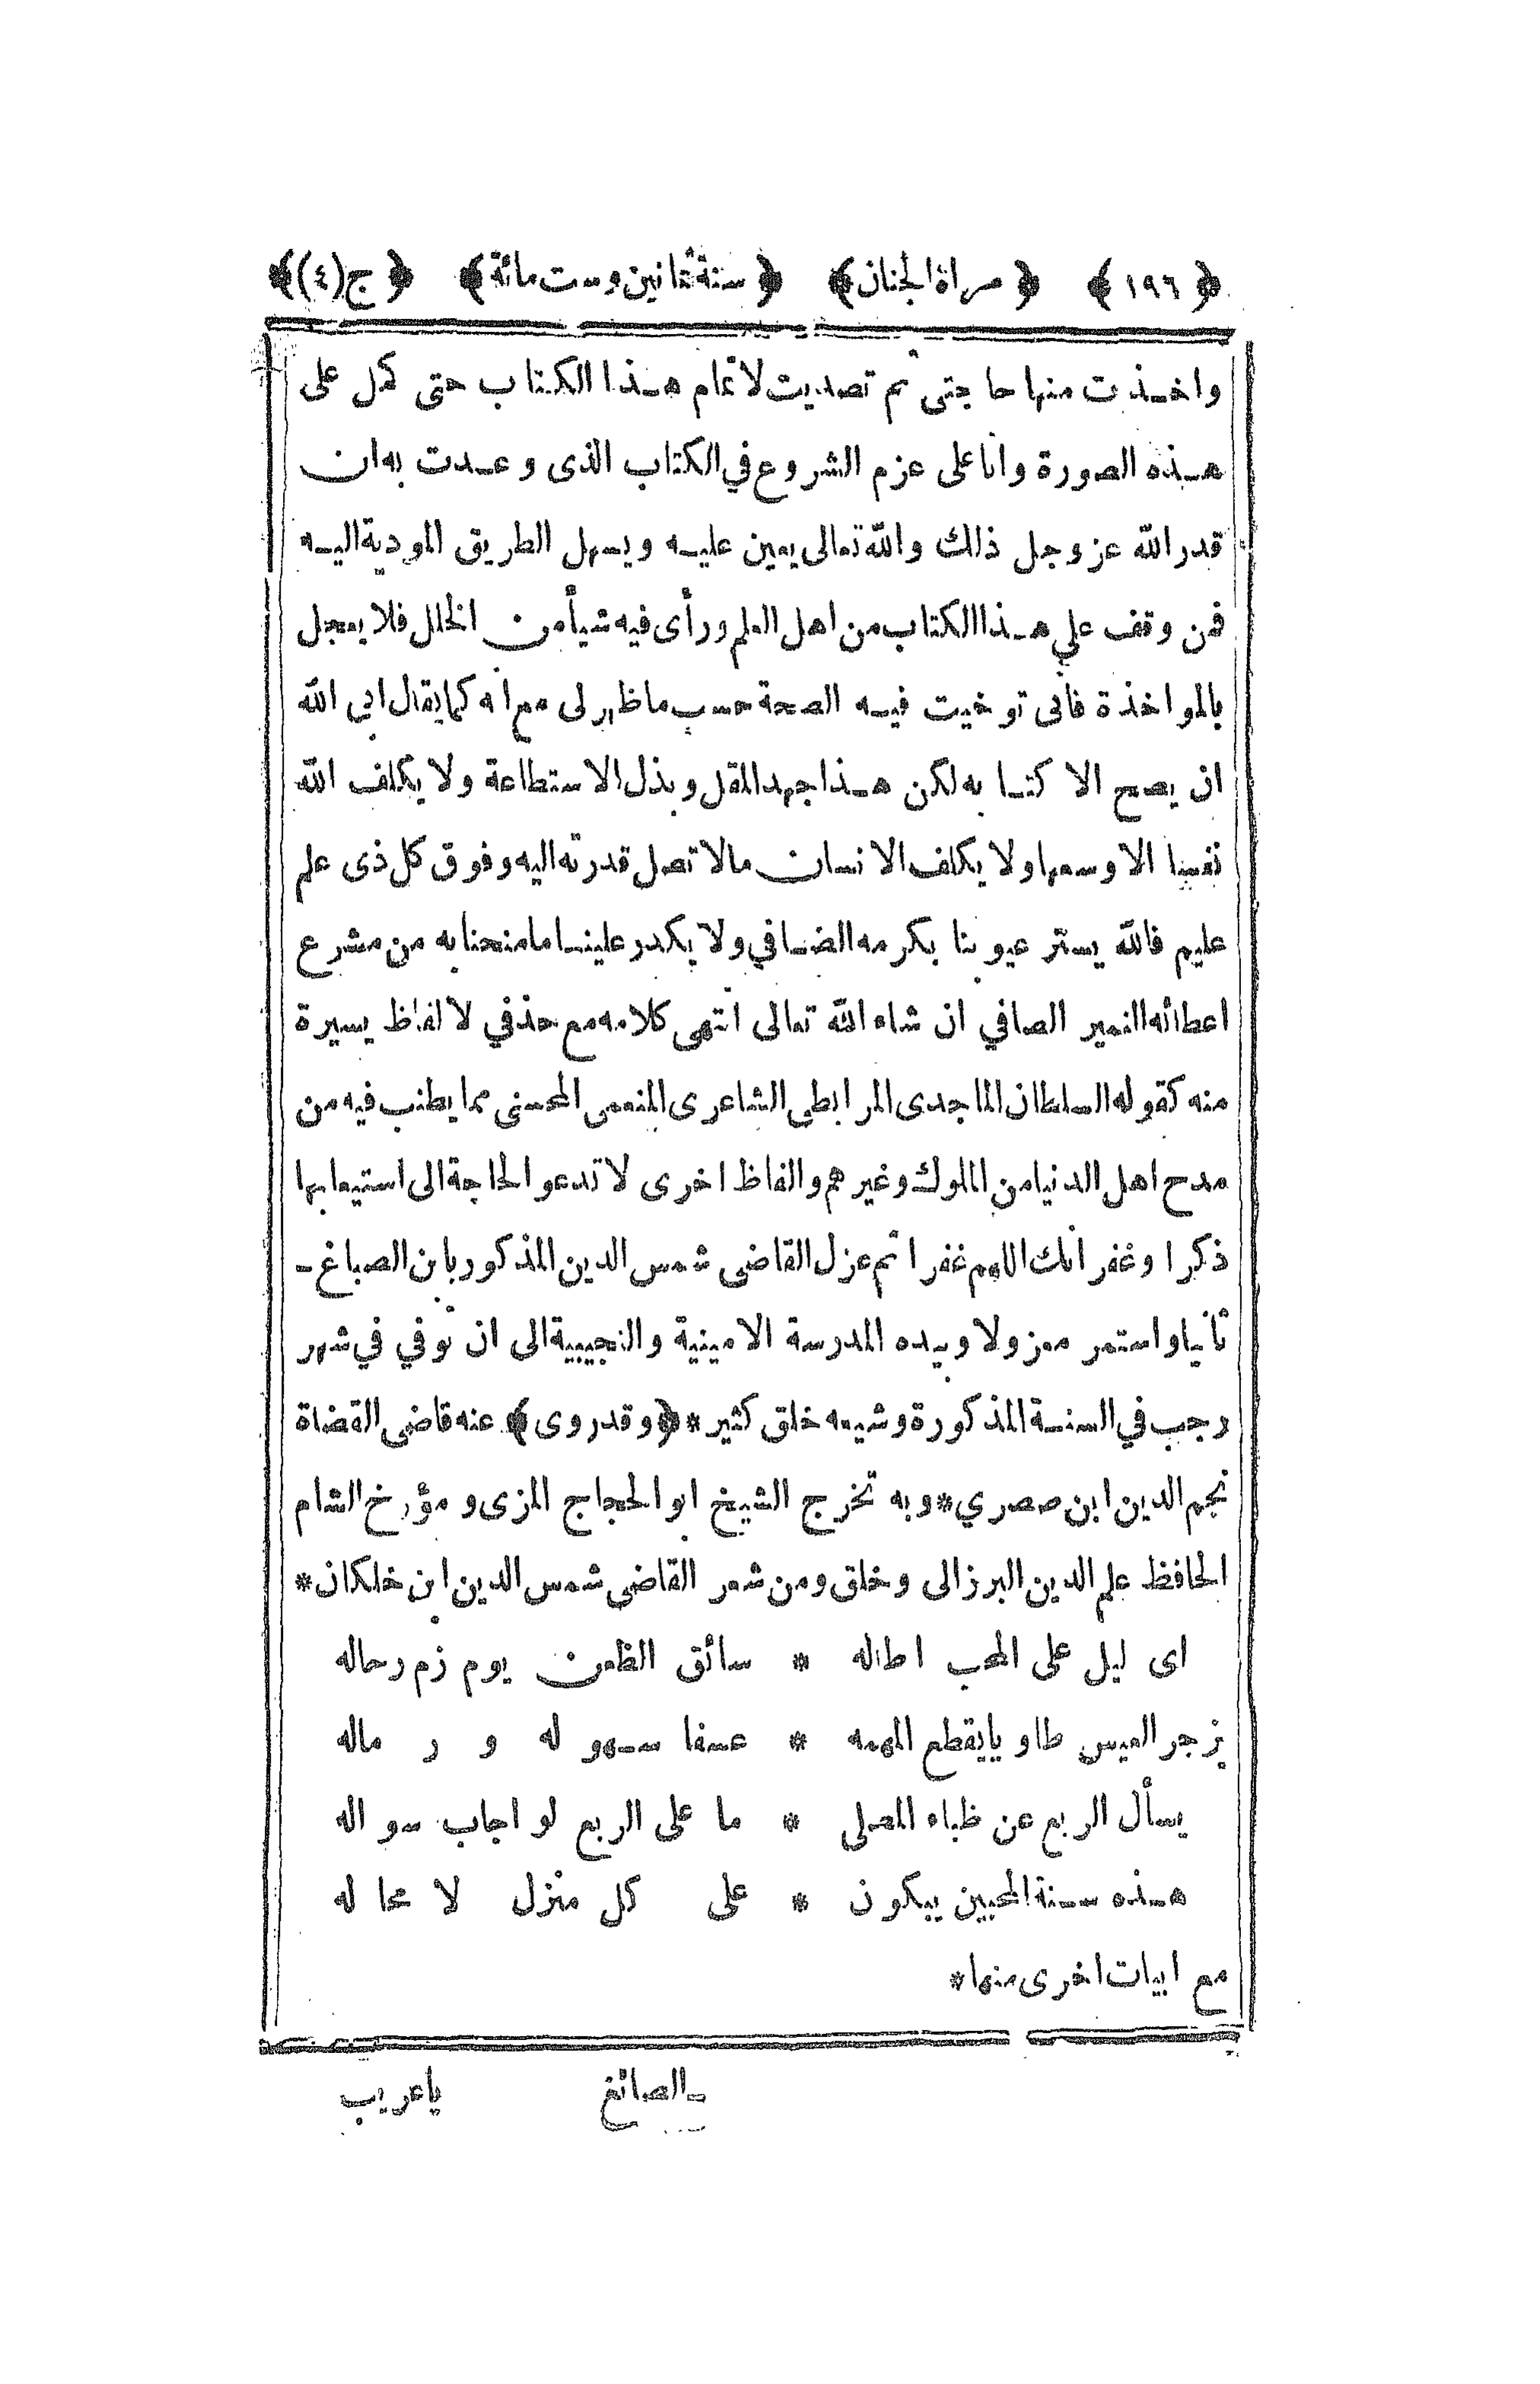 ﴿١٩٦﴾ ﴿مراة الجنان﴾ ﴿سنة ثمانين وست مائة﴾ ﴿ج(٤)﴾
واخذت منها حاجتى ثم تصديت لاتمام هذا الكتاب حتى كمل على
هذه الصورة وانا على عزم الشروع في الكتاب الذى وعدت به ان
قدر الله عز وجل ذلك والله تعالى يعين عليه ويسهل الطريق المودية اليه
فمن وقف علي هذا الكتاب من اهل العلم ورأى فيه شيأ من الخلل فلا يعجل
بالمواخذة فانى توخيت فيه الصحة حسب ما ظهر لى مع انه كما يقال ابى الله
ان يصح الا كتابه لكن هذا جهد المقل وبذل الاستطاعة ولا يكلف الله
نفسا الا وسعها ولا يكلف الانسان مالا تصل قدرته اليه وفوق كل ذى علم
عليم فالله يستر عيوبنا بكرمه الضافي ولا يكدر علينا ما منحنا به من مشرع
اعطائه النمير الصافي ان شاء الله تعالى انتهى كلامه مع حذفي لالفاظ يسيرة
منه كقوله السلطان الماجدى المرابطى الشاعرى المنعمى المحسنى مما يطنب فيه من
مدح اهل الدنيا من الملوك وغيرهم والفاظ اخرى لا تدعو الحاجة الى استيعابها
ذكرا وغفرانك اللهم غفرا ثم عزل القاضى شمس الدين المذكور بابن الصباغ ـ
ثانيا واستمر معزولا وبيده المدرسة الامينية والنجيبية الى ان توفي في شهر
رجب في السنة المذكورة وشيعه خلق كثير * ﴿وقد روى﴾ عنه قاضى القضاة
نجم الدين ابن صصري * وبه تخرج الشيخ ابو الحجاج المزى ومؤرخ الشام
الحافظ علم الدين البرزالى وخلق ومن شعر القاضى شمس الدين ابن خلكان *
اى ليل على المحب اطاله * سائق الظعن يوم زم رحاله
يزجر العيس طاويا يقطع المهمه * عسفا سهوله و ر ماله
يسأل الربع عن ظباء المصلى * ما على الربع لو اجاب سواله
هذه سنة المحبين يبكون * على كل منزل لا محاله
مع ابيات اخرى منها *
ـالصائغ ياعريب